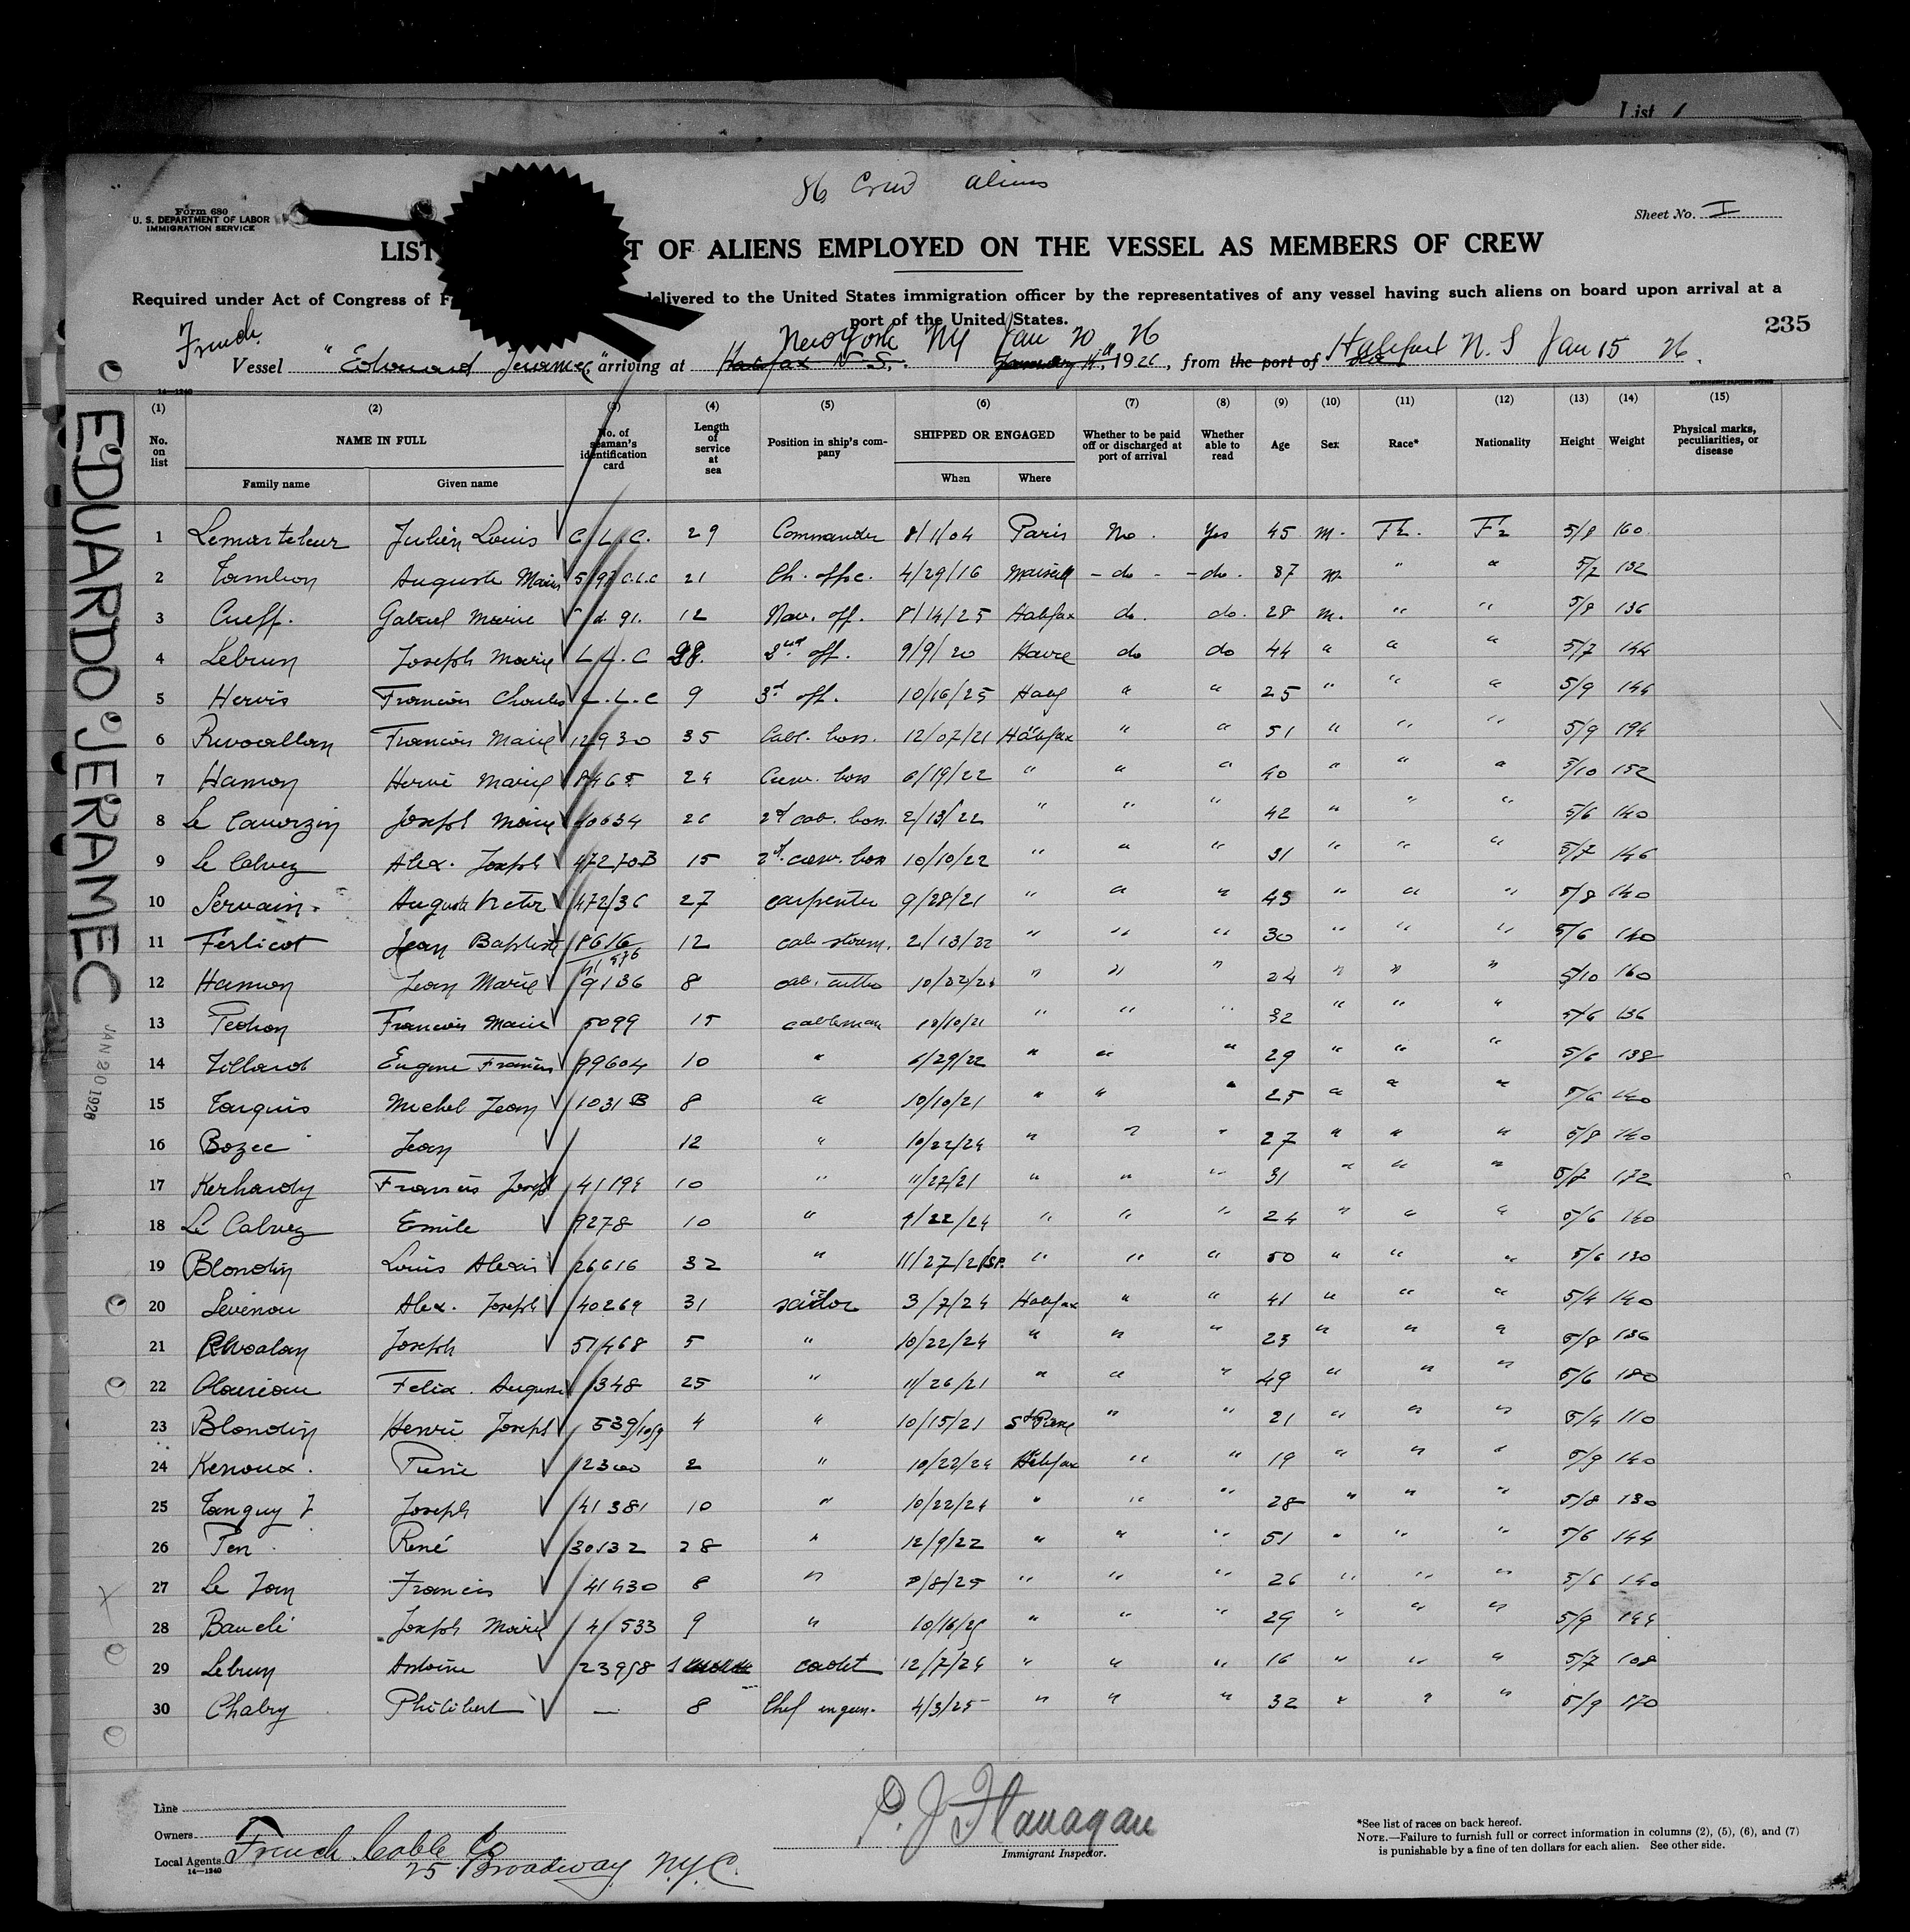 List 1
86 Crew aliens
Form 680
U. S. DEPARTMENT OF LABOR
IMMIGRATION SERVICE
Sheet No. I
LIST T OF ALIENS EMPLOYED ON THE VESSEL AS MEMBERS OF CREW
Required under Act of Congress of F delivered to the United States immigration officer by the representatives of any vessel having such aliens on board upon arrival at a
port of the United States.
235
French New York NY Jan 20 26
Vessel " Edouard Jeramec" arriving at Halifax N. S. January 1926, from the port of Halifax N. S Jan 15 26.
14—1240
(1) (2) (3) (4) (5) (6) (7) (8) (9) (10) (11) (12) (13) (14) (15)
No. on list NAME IN FULL No. of seaman's identification card Length of service at sea Position in ship's company SHIPPED OR ENGAGED Whether to be paid off or discharged at port of arrival Whether able to read Age Sex Race* Nationality Height Weight Physical marks, peculiarities, or disease
Family name Given name When Where
1 Lemarteleur Julien Louis C. L. C. 29 Commander 8/1/04 Paris No. Yes 45 m. Fr. Fr 5/8 160
2 Tambon Auguste C.L.C 21 Ch. offic. 4/29/16 - do - - do. 37 m. " " 5/7 132
3 Cueff. Gabriel Marie 91. 12 Nav. off. 8/14/25 Halifax do. do. 28 m. " " 5/8 136
4 Lebrun Joseph Marie 28. 2nd off. 9/9/20 Havre do do 44 " " " 5/7 144
5 Hervis Francois Charles L. C 9 3d off. 10/16/25 Half " " 25 " " " 5/9 144
6 Rivoallan Francois Marie 12930 35 Cabl. boss. 12/07/21 Halifax " " 51 " " " 5/9 194
7 Hamon Hervé Marie 8465 24 boss 6/19/22 " " " 40 " " " 5/10 152
8 Joseph Marie 40634 26 2d cab. boss. 2/13/22 " " " 42 " " " 5/6 140
9 Le Calvez Alex. Joseph 47270B 15 boss 10/10/22 " " " 31 " " " 5/7 146
10 Servain. Auguste Victor 47236 27 carpenter 9/28/21 " " " 45 " " " 5/8 140
11 Ferlicot Jean Baptiste 8616 12 2/13/22 " " " 30 " " " 5/6 140
12 Hamon Jean Marie 9136 8 " " " 24 " " " 5/10 160
13 Francois Marie 5099 15 cableman 10/10/21 " " " 32 " " " 5/6 136
14 Eugene Francois 99604 10 " 6/29/22 " " " 29 " " " 5/6 138
15 Michel Jean 1031 B 8 " 10/10/21 " " " 25 " " " 5/6 140
16 Bozec Jean 12 " 10/22/24 " " " 27 " " " 5/8 140
17 Kerhardy Francois Joseph 41194 10 " 11/27/21 " " " 31 " " " 5/7 172
18 Le Calvez Emile 9278 10 " 9/22/24 " " " 24 " " " 5/6 140
19 Blondin Louis Alexis 26616 32 " 11/27/21 " " " 50 " " " 5/6 130
20 Levenou Alex. Joseph 40264 31 sailor 3/7/24 Halifax " " 41 " " " 5/4 140
21 Joseph 51468 5 " 10/22/24 " " " 23 " " " 5/8 136
22 Felix Auguste 1348 25 " 11/26/21 " " " 49 " " " 5/6 180
23 Blondin Henri Joseph 539/1019 4 " 10/15/21 St Pierre " " 21 " " " 5/4 110
24 Kenoux. Pierre 12300 2 " 10/22/24 Halifax " " 19 " " " 5/9 140
25 Tanguy J Joseph 41381 10 " 10/22/24 " " " 28 " " " 5/8 130
26 Pen René 30132 28 " 12/9/22 " " " 51 " " " 5/6 144
27 Le Jan Francis 41430 8 " " " " 26 " " " 5/6 140
28 Joseph Marie 41533 9 " 10/16/25 " " " 29 " " " 5/9 144
29 Lebrun Antoine 23958 1 cadet 12/7/24 " " " 16 " " " 5/7 108
30 Chabry Philibert — 8 Chef engen. 4/3/25 " " " 32 " " " 5/9 170
EDUARDO JERAMEC
JAN 20 1926
Line
Owners
Local Agents French Cable Co
25 Broadway N.Y.C.
14—1240
P. J. Flanagan
Immigrant Inspector.
*See list of races on back hereof.
NOTE.—Failure to furnish full or correct information in columns (2), (5), (6), and (7)
is punishable by a fine of ten dollars for each alien. See other side.